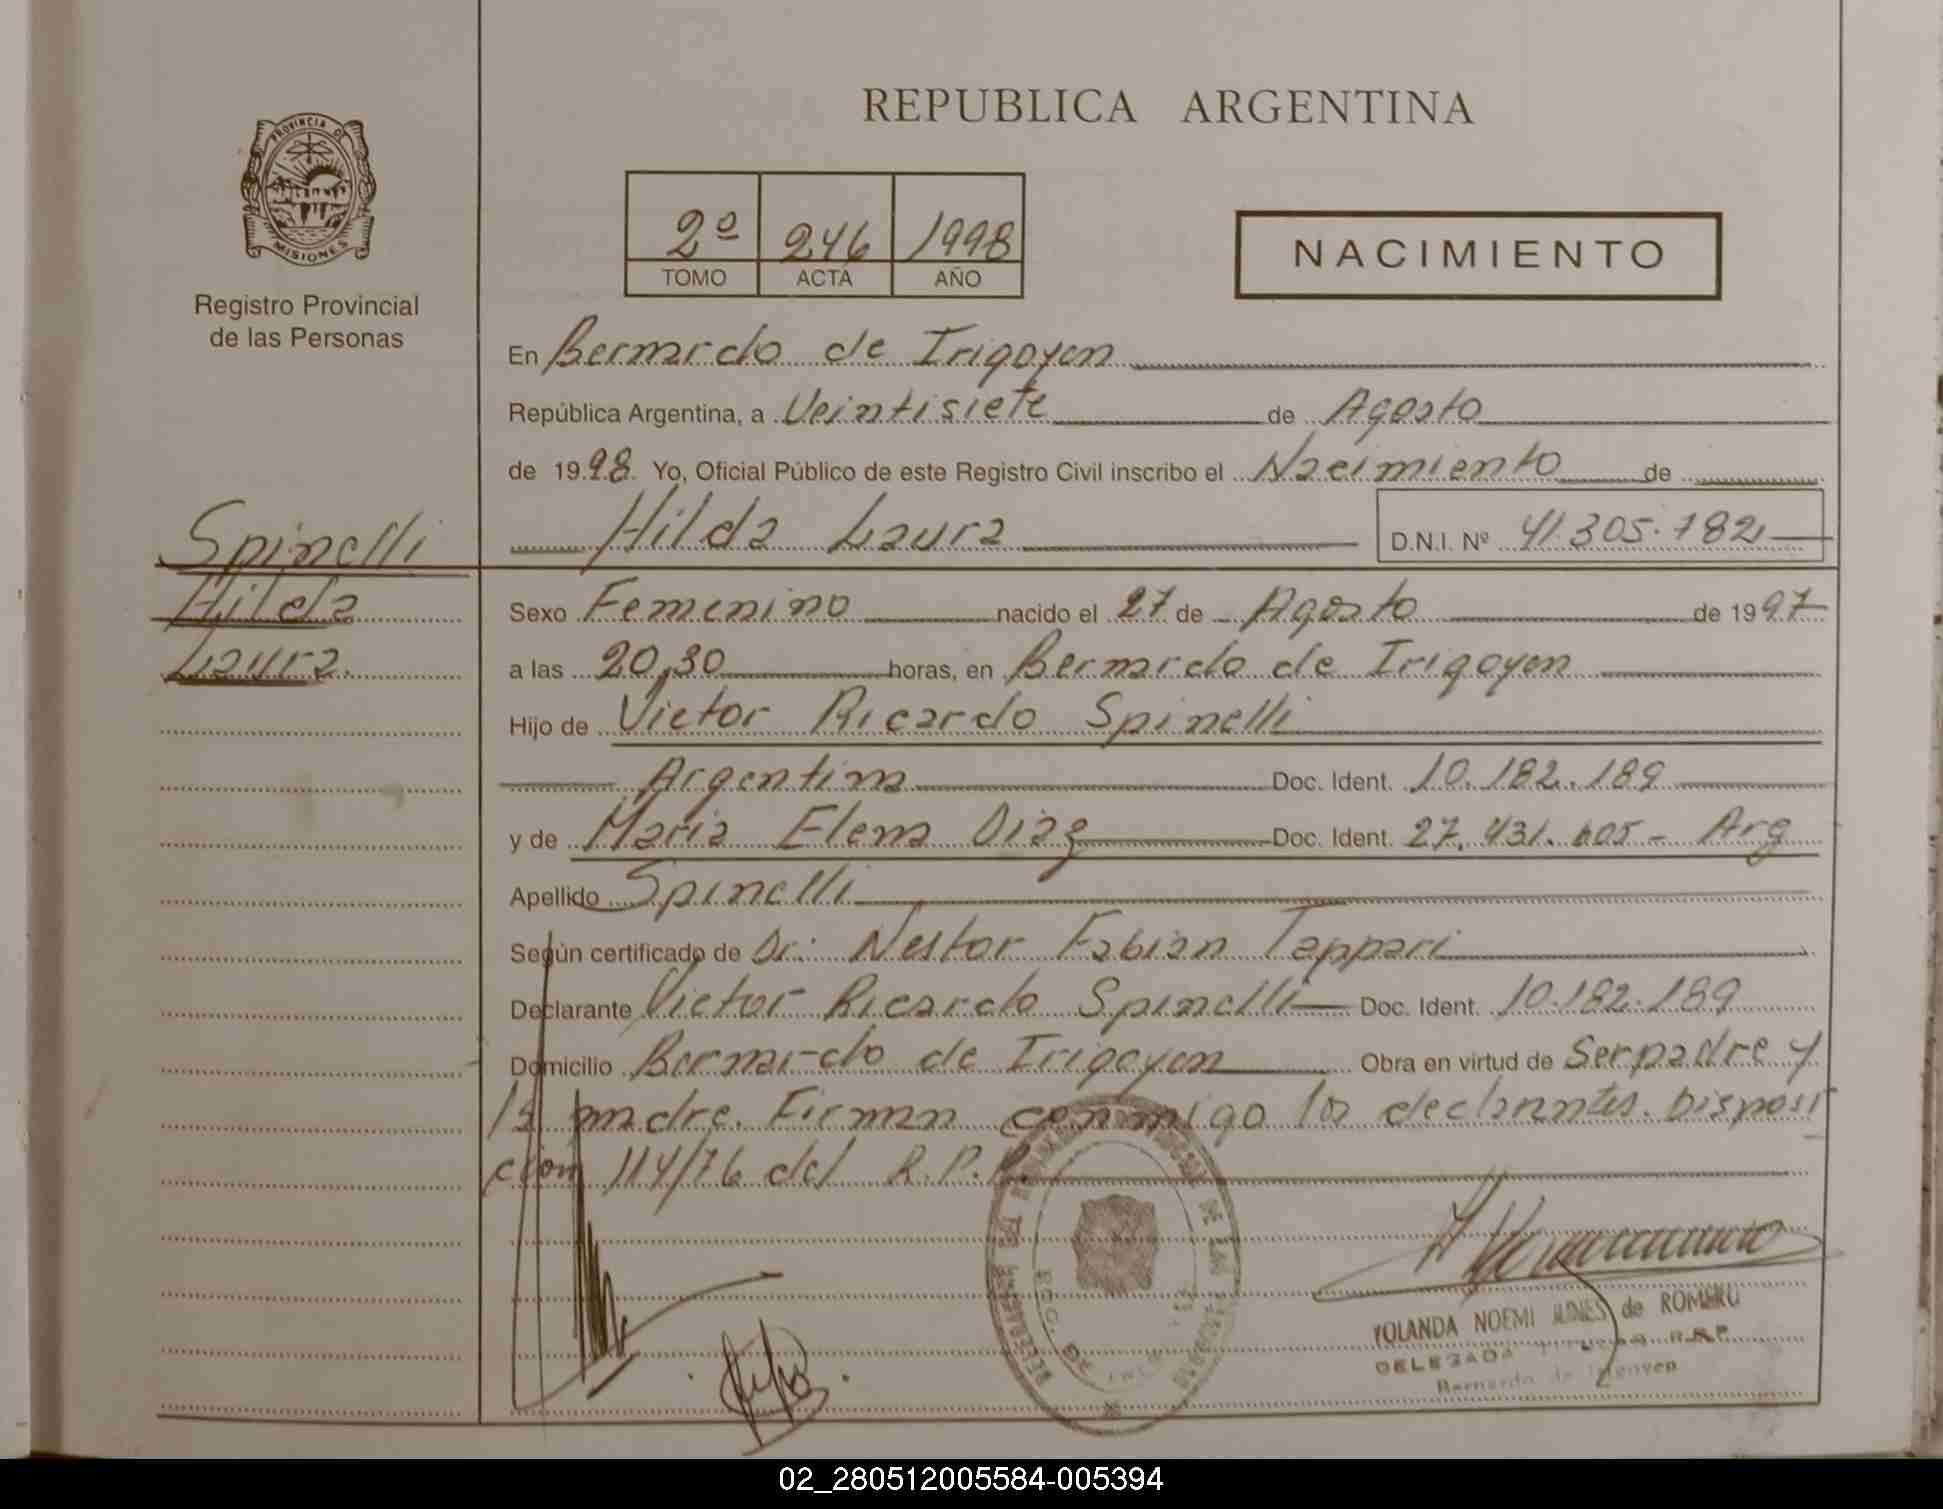 PROVINCIA DE
MISIONES
Registro Provincial
de las Personas
Spinelli
Hilda
Laura.
REPUBLICA ARGENTINA
2º 246 1998
TOMO ACTA AÑO
NACIMIENTO
En Bernardo de Irigoyen
República Argentina, a Veintisiete de Agosto
de 1998. Yo, Oficial Público de este Registro Civil inscribo el Nacimiento de
Hilda Laura D.N.I. Nº 41.305.782
Sexo Femenino nacido el 27 de Agosto de 1997
a las 20,30 horas, en Bernardo de Irigoyen
Hijo de Victor Ricardo Spinelli
Argentina Doc. Ident. 10.182.189
y de Maria Elena Diaz Doc. Ident. 27.431.605 - Arg
Apellido Spinelli
Según certificado de Dr: Nestor Fabian Tappari
Declarante Victor Ricardo Spinelli Doc. Ident. 10.182.189
Domicilio Bernardo de Irigoyen Obra en virtud de Ser padre y
la madre. Firman conmigo los declarantes. Disposi
cion 114/76 del R.P.P.
YOLANDA NOEMI de ROMERO
DELEGADA R.R.P.
Bernardo de Irigoyen
02_280512005584-005394